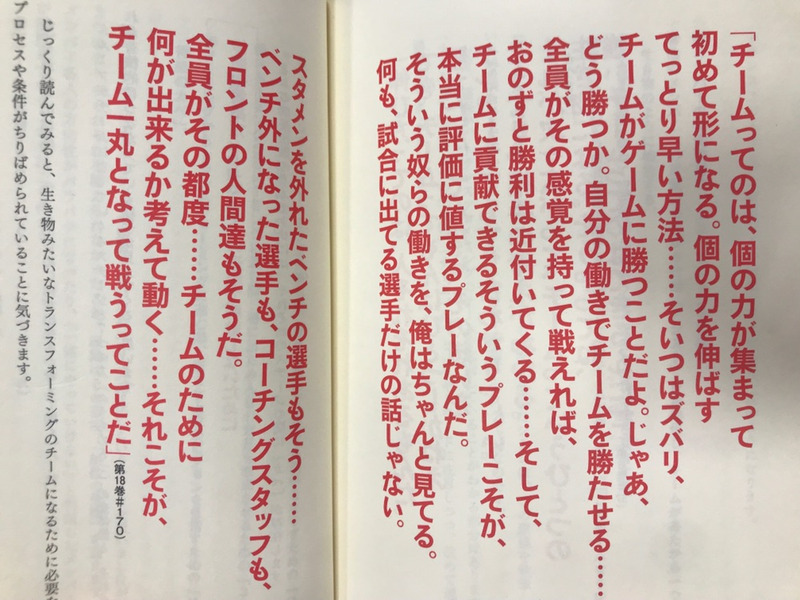 「チームってのは、個の力が集まって
初めて形になる。個の力を伸ばす
てっとり早い方法……そいつはズバリ、
チームがゲームに勝つことだよ。じゃあ、
どう勝つか。自分の働きでチームを勝たせる……
全員がその感覚を持って戦えれば、
おのずと勝利は近付いてくる……そして、
チームに貢献できるそういうプレーこそが、
本当に評価に値するプレーなんだ。
そういう奴らの働きを、俺はちゃんと見てる。
何も、試合に出てる選手だけの話じゃない。
スタメンを外れたベンチの選手もそう……
ベンチ外になった選手も、コーチングスタッフも、
フロントの人間達もそうだ。
全員がその都度……チームのために
何が出来るか考えて動く……それこそが、
チーム一丸となって戦うってことだ」(第18巻#170)
じっくり読んでみると、生き物みたいなトランスフォーミングのチームになるために必要な
プロセスや条件がちりばめられていることに気づきます。